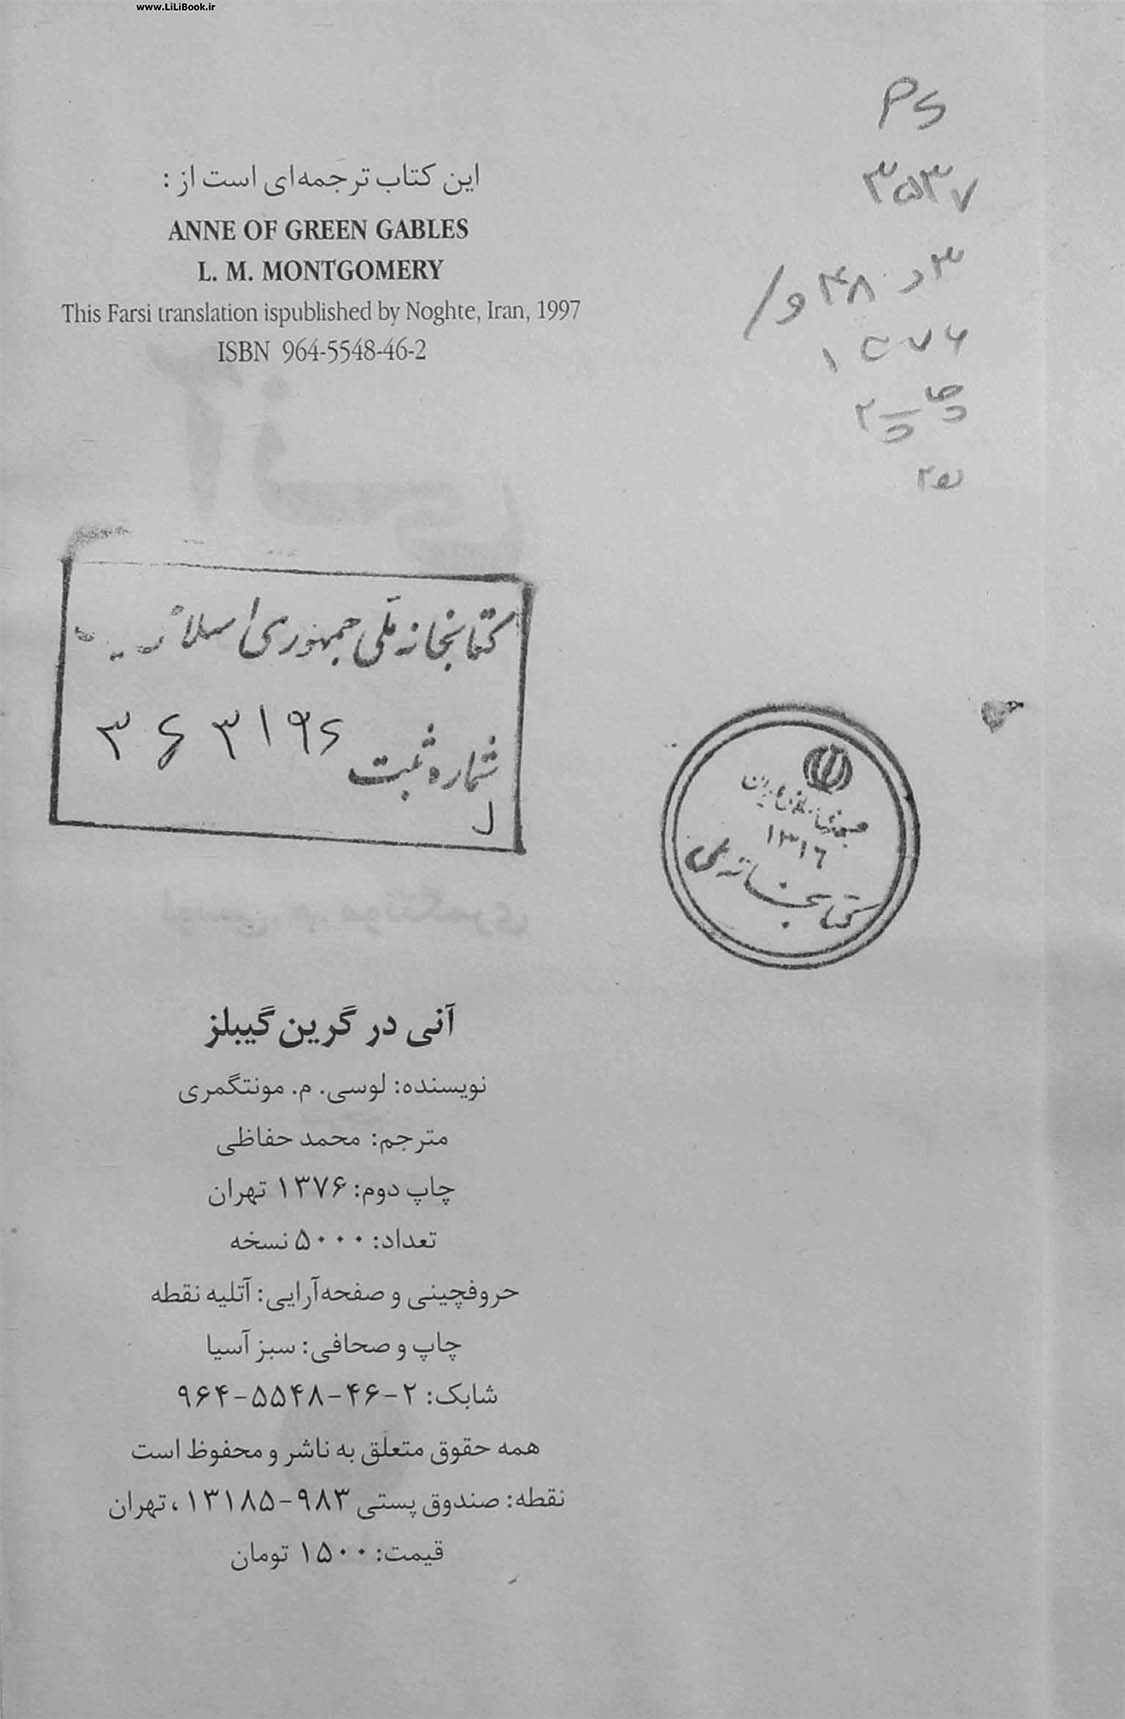 www.LiLiBook.ir
این کتاب ترجمه‌ای است از :
ANNE OF GREEN GABLES
L. M. MONTGOMERY
This Farsi translation ispublished by Noghte, Iran, 1997
ISBN 964-5548-46-2
PS
۳۵۳۷
۱۳۷۶
کتابخانه ملی جمهوری اسلامی
شماره ثبت
جمهوری اسلامی ایران
۱۳۱۶
کتابخانه ملی
آنی در گرین گیبلز
نویسنده: لوسی. م. مونتگمری
مترجم: محمد حفاظی
چاپ دوم: ۱۳۷۶ تهران
تعداد: ۵۰۰۰ نسخه
حروفچینی و صفحه‌آرایی: آتلیه نقطه
چاپ و صحافی: سبز آسیا
شابک: ۲-۴۶-۵۵۴۸-۹۶۴
همه حقوق متعلق به ناشر و محفوظ است
نقطه: صندوق پستی ۹۸۳-۱۳۱۸۵، تهران
قیمت: ۱۵۰۰ تومان